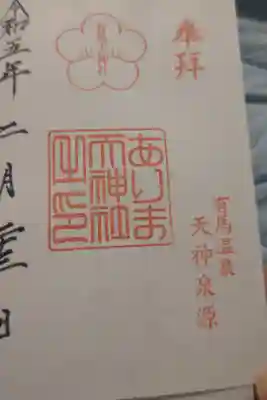 奉拝
有馬温泉
天神泉源
ありま
天神社
之印
令和五年二月